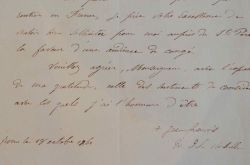 rentrer en France, je prie votre Excellence de
vouloir bien solliciter pour moi auprès de St Père
la faveur d'une audience de congé.
Veuillez agréer, Monseigneur, avec l'expression
de ma gratitude, celle des sentiments de
avec lesquels j'ai l'honneur d'être
Rome le 18 octobre